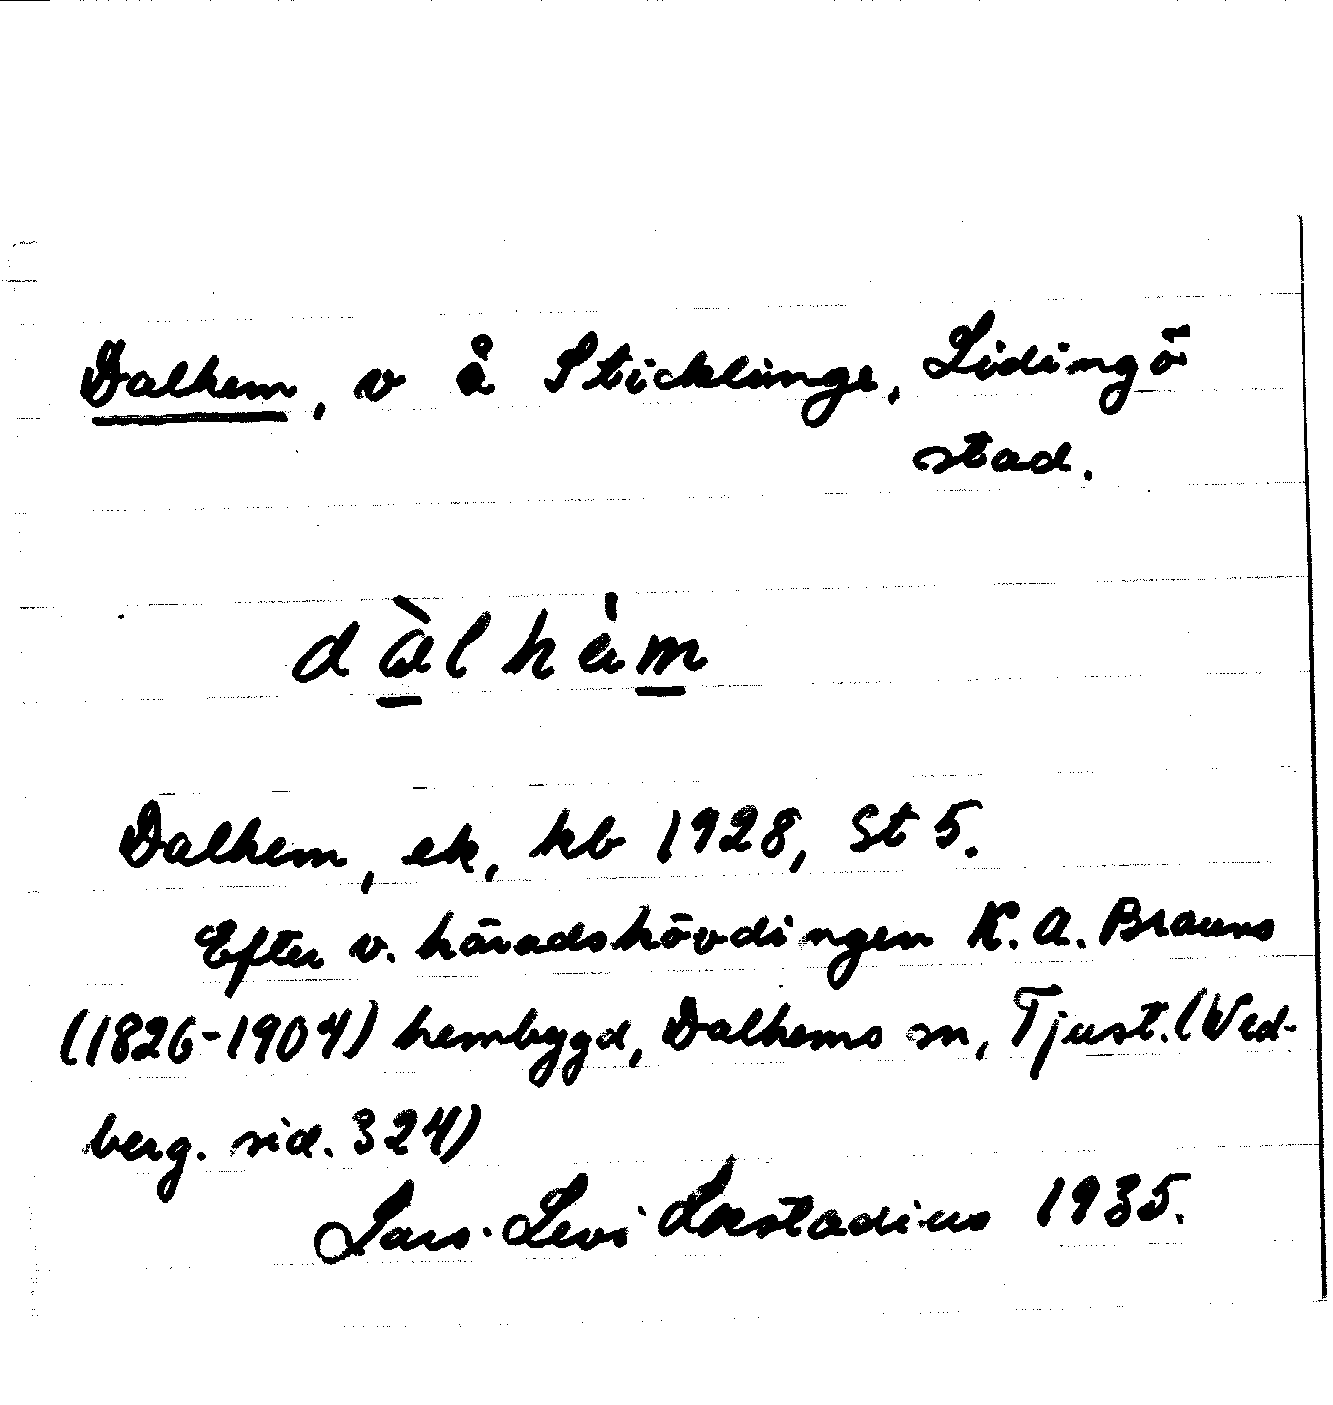 Dalhem, v å Sticklinge, Lidingö
stad.
dàlhèm
Dalhem, ek, kb 1928, St 5.
Efter v. häradshövdingen K. A. Brauns
(1826-1904) hembygd, Dalhems sn, Tjust. (Wed-
berg. sid. 324)
Lars-Levi Læstadius 1935.